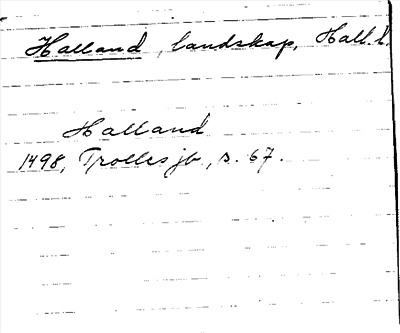 Halland, landskap, Hall. l.
Halland
1498, Trolles jb, s. 67.